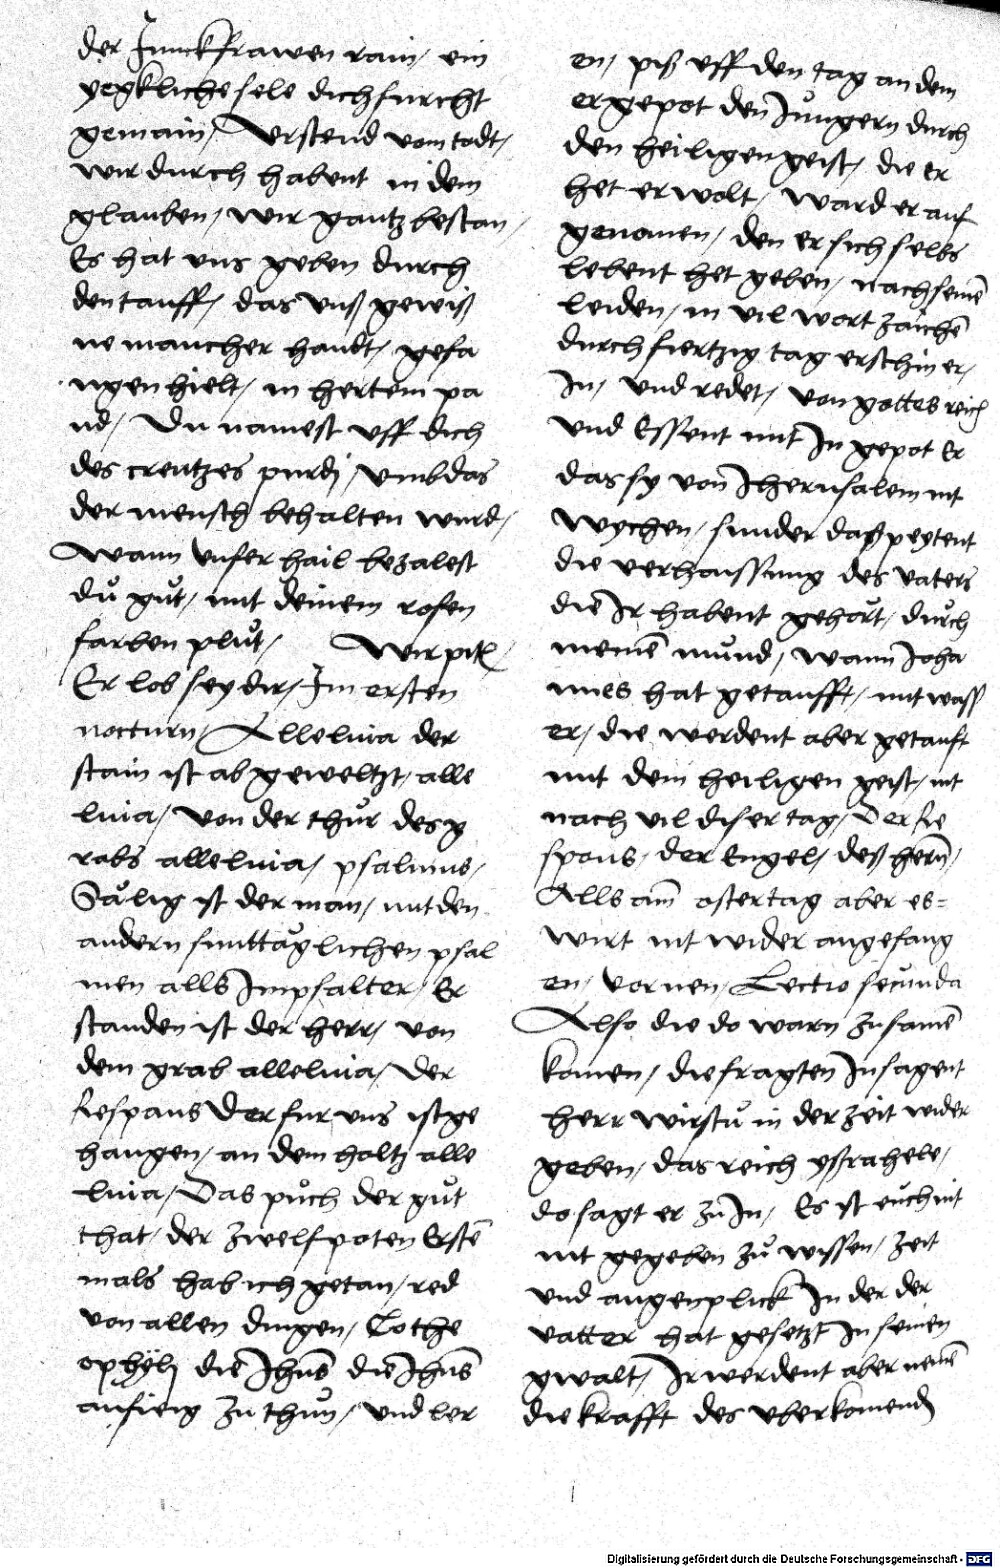 der Junckfrawen rain / ein
yegkliche sele dich furcht
gemain / Erstend vom todt /
wir durch habent in dem
glauben / wir gantz bestan /
Es hat vns geben durch
den tauff / das vnß gewiß
ne mancher handt / gefa
ngen hielt / in hertem pa
nd / Du namest vff dich
des creutzes purdj / vmb das
der mensch behalten wurd /
Wann vnser hail bezalest
dů gůt / mit deinem rosen
farben plůt / Wir pitē /
Er lob sey dir / Im ersten
nocturn / Alleluia der
stain ist ab geweltzt / alle
luia / von der thůr des g
rabs alleluia / psalmus /
Sälig ist der man / mit den
andern sunttäglichen psal
men alls Im psalter / Er
standen ist der herr / von
dem grab alleluia / Der
Respons Der fur vns ist ge
hangen / an dem holtz alle
luia / Das půch der gůt
that / der zwelfpoten Erstē
mals hab ich getan / red
von allen dingen / O othe
ophÿlj die Jhūs die Jhūs
anfieng zu thůn / vnd ler
en / piß vff den tag an dem
er gepot den Jůngern durch
den heiligen geist / die er
het erwolt / ward er auf
genomen / den er sich selbs
lebent het geben / nach seinē
leiden / in vil wort zaichē
durch fiertzig tag erschin er /
In / vnd redet / von gottes reich
vnd Essent mit In gepot Er
das sy von Jherusalem nit
wychen / sunder daß peytent
die verhaissung des vaters
die Ir habent gehört / důrch
meinē mund / wann Joha
nnes hat getaufft / mit wass
er / die werdent aber getauft
mit dem heiligen geist / nit
nach vil diser tag / Der Re
spons / der Engel / deß herrn /
Alls am ostertag aber es=
wirt nit wider angefang
en / vornen / Lectio secunda
Also die do warn zusamē
komen / die fragten In sagent
herr wirstů in der zeit wider
geben / das reich ysrahele /
do sagt er zů In / Es ist eůch nit
nit gegeben zů wissen / zeit
vnd augenplick In der der
vatter hat gesetzt In seinen
gwalt / Ir werdent aber nemē
die krafft des vberkomend
Digitalisierung gefördert durch die Deutsche Forschungsgemeinschaft - DFG